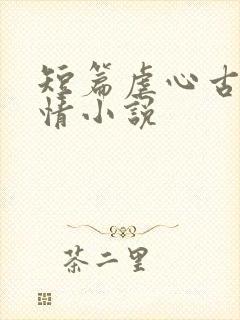 短篇虐心古
情小説
茶二里